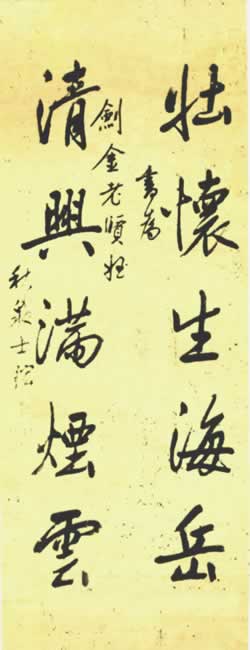 壮懷生海岳
書為
劍金老賢姪
清興滿煙雲
秋泉士